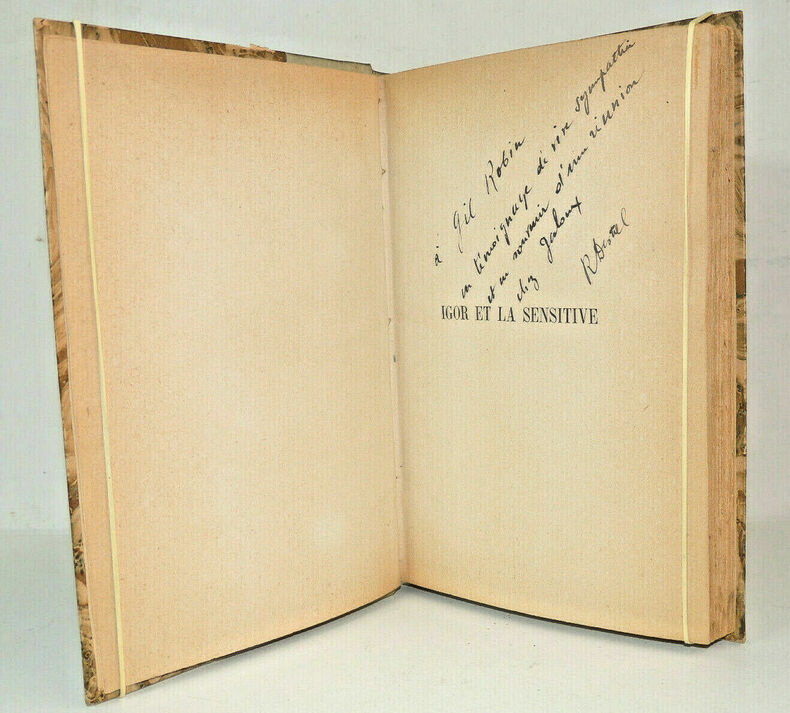 à Gil Robin
en témoignage de vive sympathie
et en souvenir d'une réunion
chez Jaloux
IGOR ET LA SENSITIVE